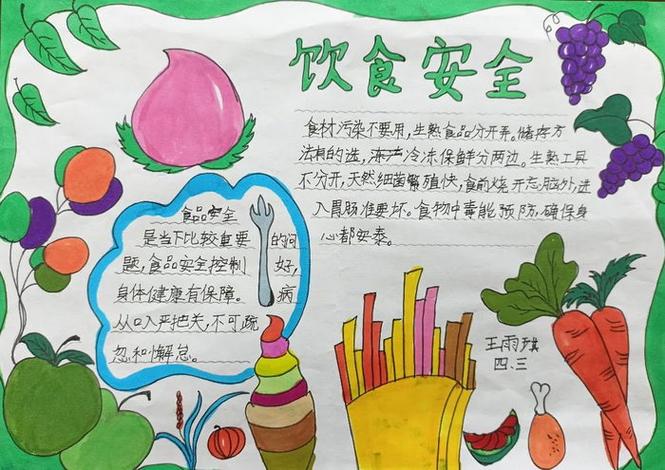 饮食安全
食材污染不要用,生熟食品分开弄。储存方
法有的选,冷冻保鲜分两边。生熟工具
不分开,天然细菌繁殖快,食前烧开忘脑外,进
入胃肠准要坏。食物中毒能预防,确保身
心都安泰。
食品安全
是当下比较重要的问
题,食品安全控制好,
身体健康有保障。病
从口入严把关,不可疏
忽和懈怠。
王雨琪
四.三